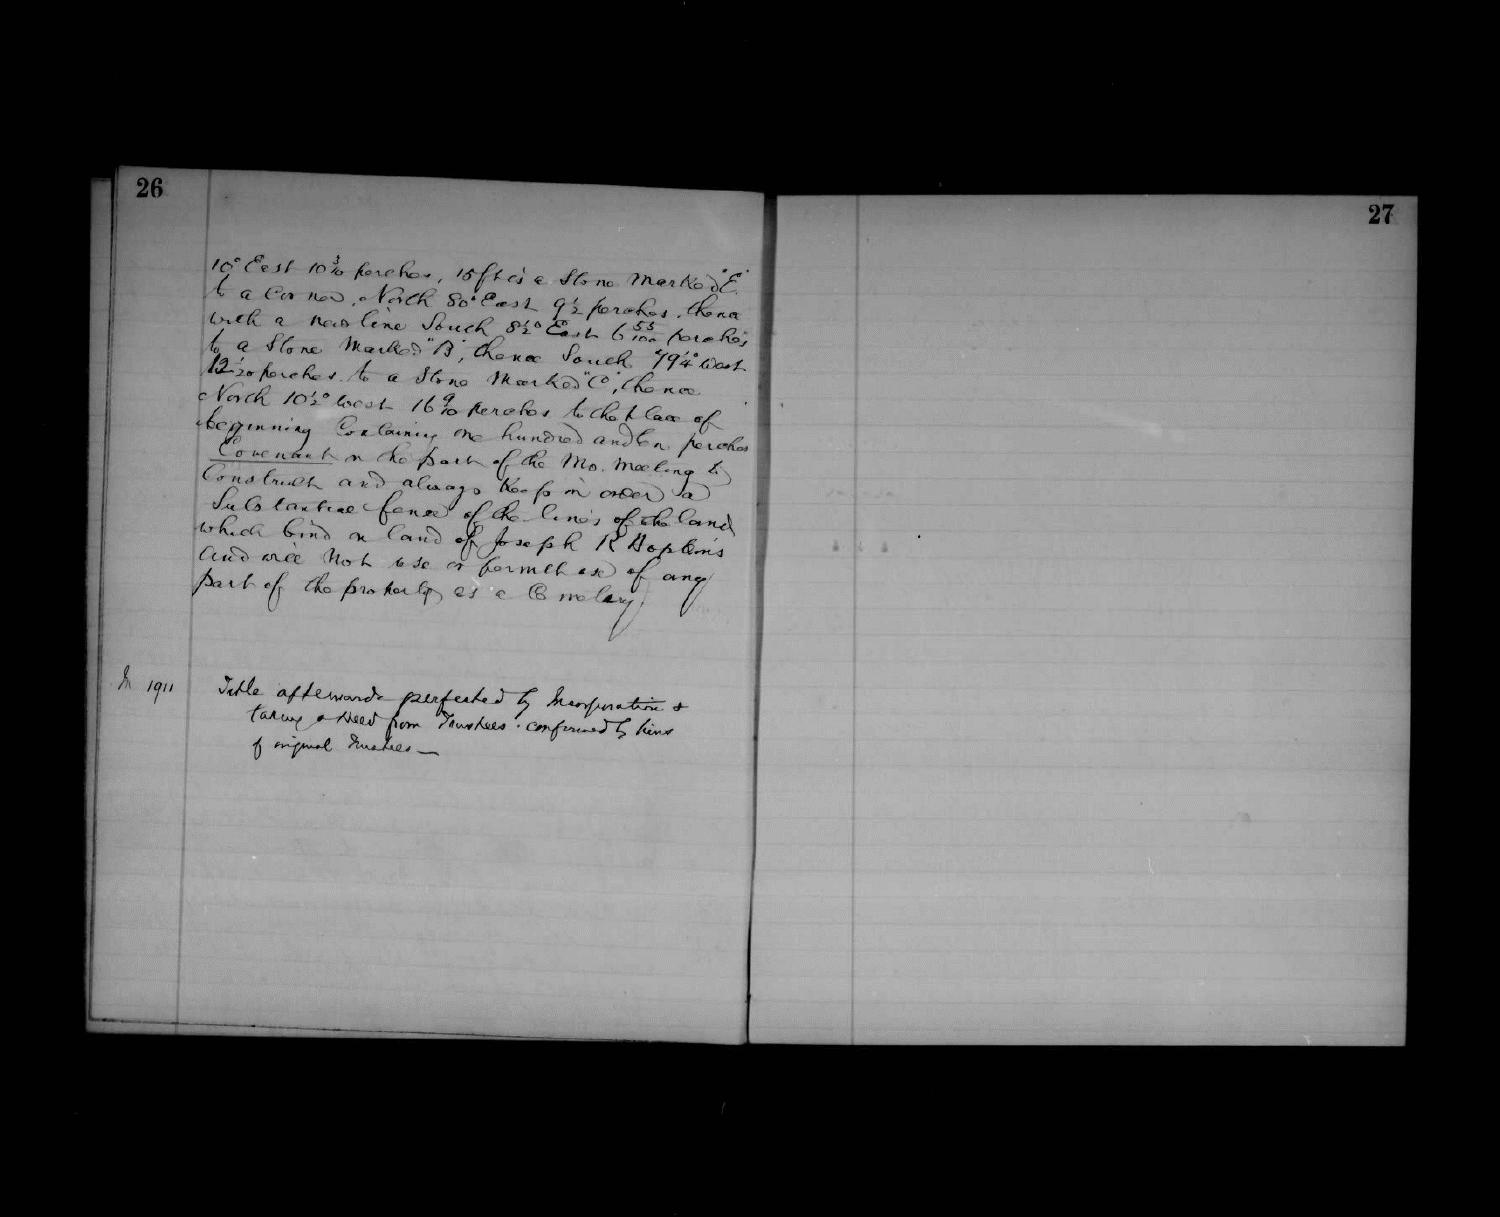 26
10° East 10 3/10 perches, 15 ft is a Stone Marked "E"
to a Corner, North 80° East 9½ perches, thence
with a new line South 8½° East 6 55/100 perches
to a Stone Marked "B", thence South 79¼° West
12 1/20 perches to a Stone Marked "C", thence
North 10½° West 16 9/10 perches to the place of
beginning Containing one hundred and ten perches
Covenant on the part of the Mo. Meeting to
Construct and always Keep in order a
Substantial fence of the lines of the land
which bind on land of Joseph R Hopkins
and will Not use or permit use of any
part of the property as a Cemetery
In 1911 Title afterwards perfected by Incorporation &
taking a deed from Trustees confirmed by heirs
of original Trustees —
27